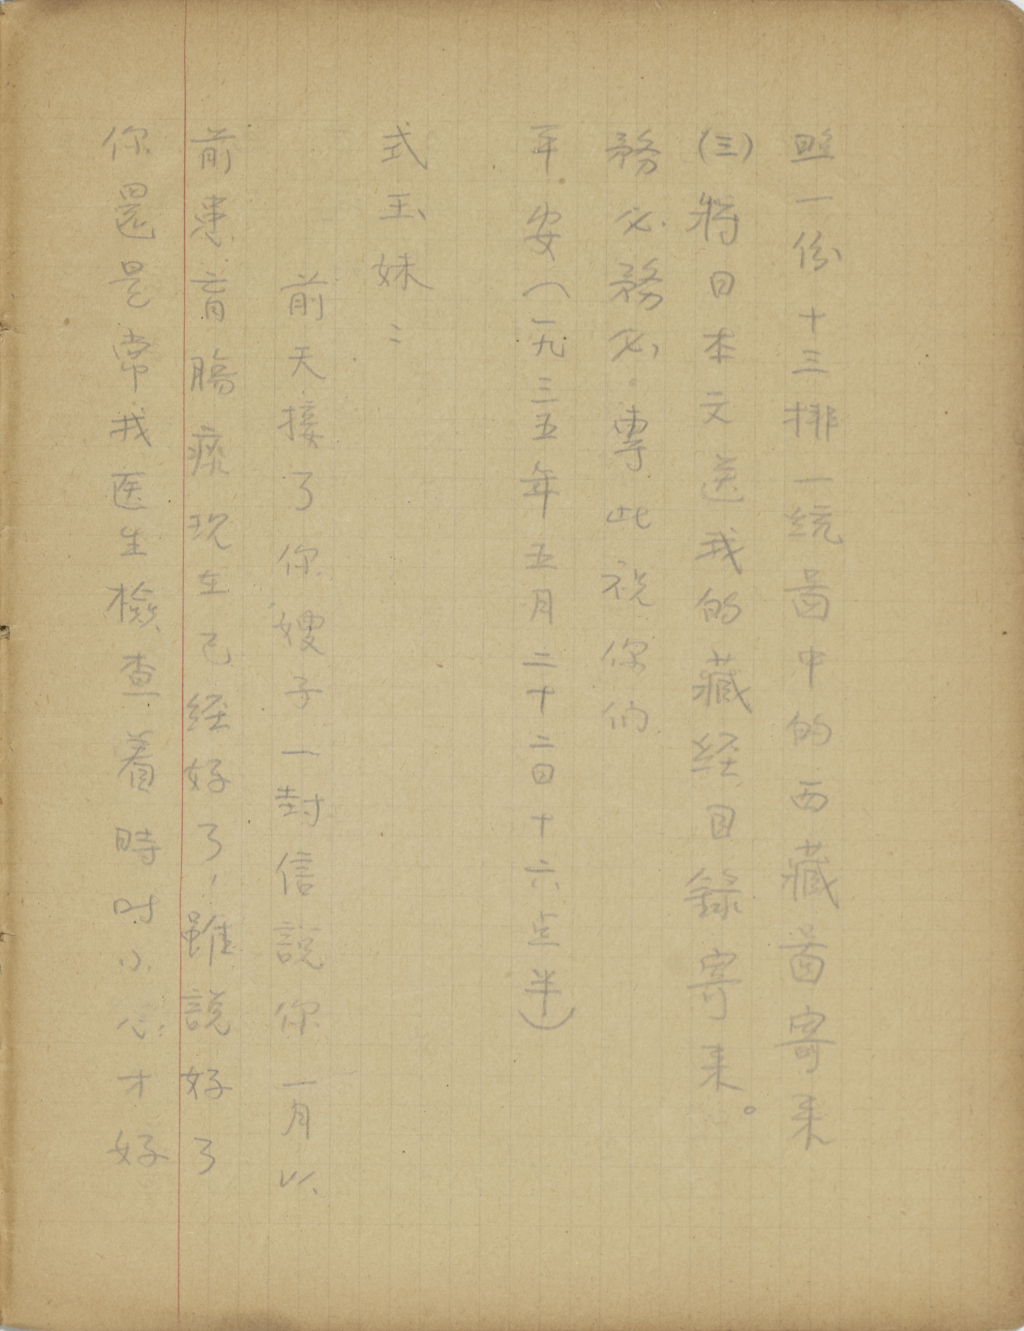 照一份十三排一統啚中的西藏啚寄来
(三)將日本文送我的藏経目錄寄来。
務必務必。專此祝你們
平安(一九三五年五月二十二日十六点半)
式玉妹:
前天接了你嫂子一封信說你一月以
前患盲腸痰現在已经好了,雖說好了
你還是常我医生檢查着時时小心才好